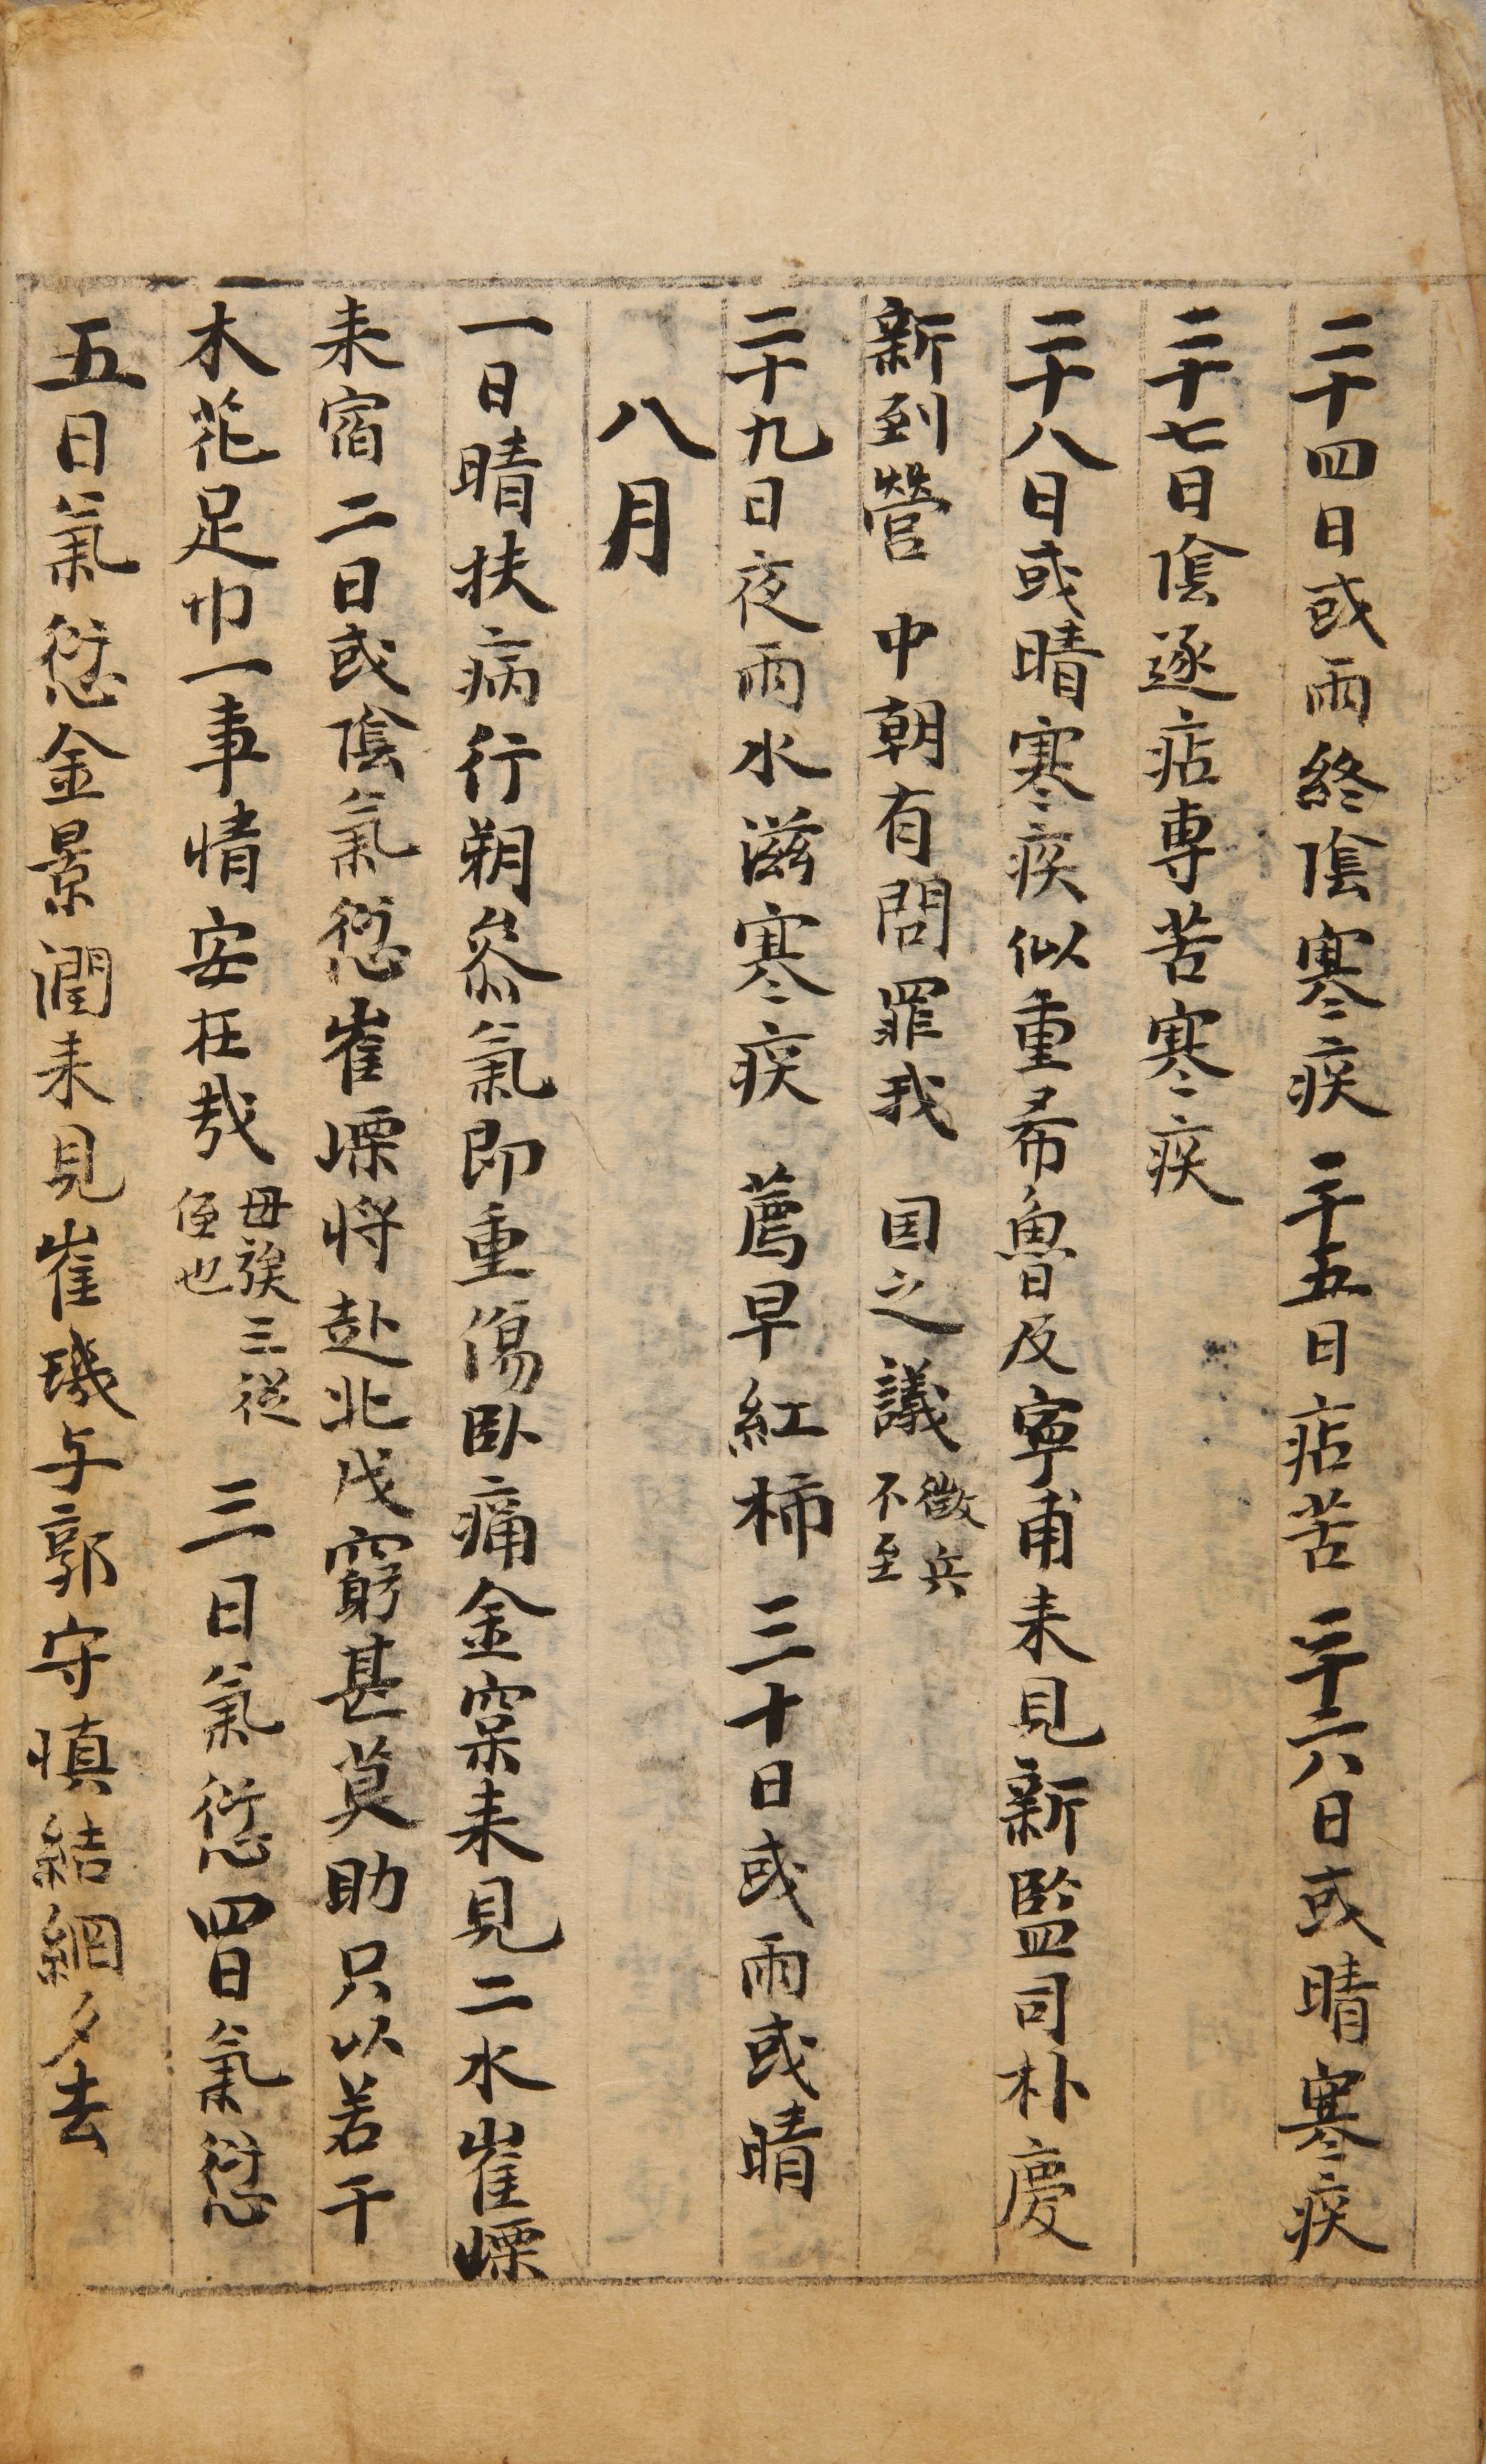 二十四日或雨終陰寒疾 二十五日痁苦 二十六日或晴寒疾
二十七日陰逐痁専苦寒疾
二十八日或晴寒疾似重希魯及寧甫来見新監司朴慶
新到營 中朝有問罪我 国之議徵兵不至
二十九日夜雨水滋寒疾 薦早紅柿 三十日或雨或晴
八月
一日晴扶病行朔叅氣即重傷卧痛金寀来見二水崔𡹘
来宿二日或陰氣愆崔𡹘将赴北戍窮甚莫助只以若干
木花足巾一事情安在哉母族三從侄也 三日氣愆四日氣愆
五日氣愆金景潤来見崔璣与郭守慎結網夕去